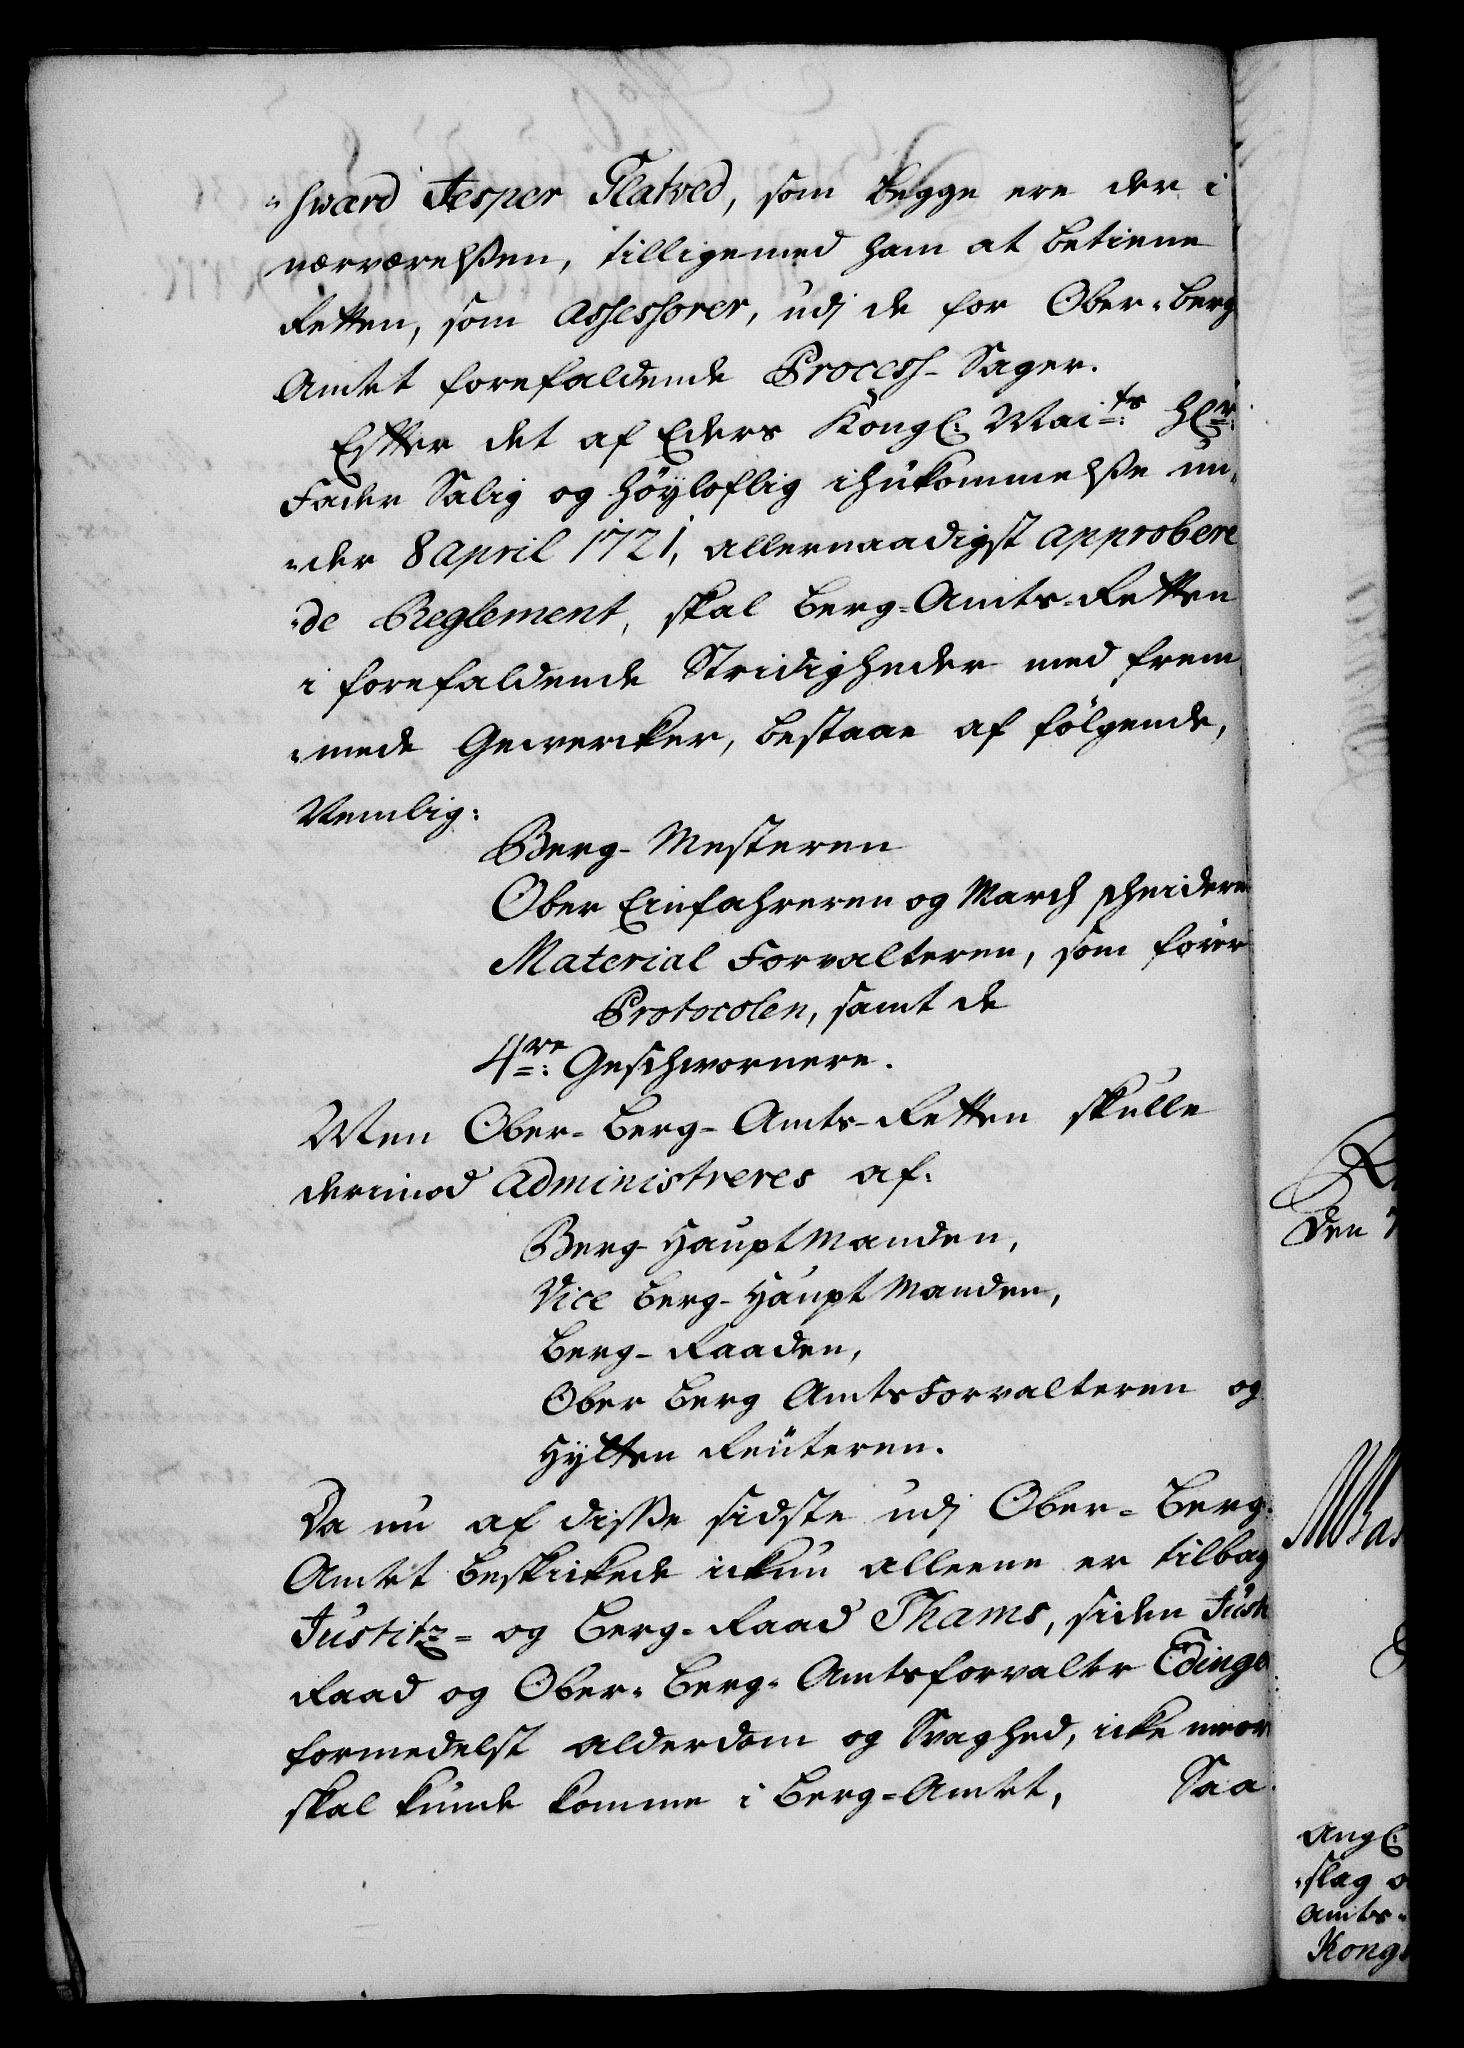 "hward Jesper Flatved, som begge ere der i
nærværelßen, tilligemed ham at betiene
Retten, som Assessorer, udj de for Ober-Berg
Amtet forefaldende Process-Sager.
Efter det af Eders Kongl: Mai:ts Hr:
Fader Salig og Høyloflig ihukommelße un,
"der 8 April 1721, allernaadigst approbere
"de Reglement, skal Berg-Amts-Retten
i forefaldende Stridigheder med frem
"mede Gewercker, bestaae af følgende,
Nemlig:
Berg-Mesteren
Ober Einfahreren og Marchscheidere
Material Forvalteren, som fører
Protocolen, samt de
4re: Geschwornere.
Men Ober-Berg-Amts-Retten skulle
derimod Administreres af:
Berg-Hauptmanden,
Vice Berg-Hauptmanden,
Berg-Raaden,
Ober Berg Amtsforvalteren og
Hytten Reüteren.
Da nu af disse sidste udj Ober-Berg-
Amtet beskickede ickun alleene er tilbag
Justitz- og Berg-Raad Thams, siden Just
Raad og Ober-Berg-Amtsforvalter Edinge
formedelst alderdom og Svaghed, icke meer
skal kunde komme i Berg-Amtet, Saa
Den 7
Angl:
"slag o
Amts-
Kongs